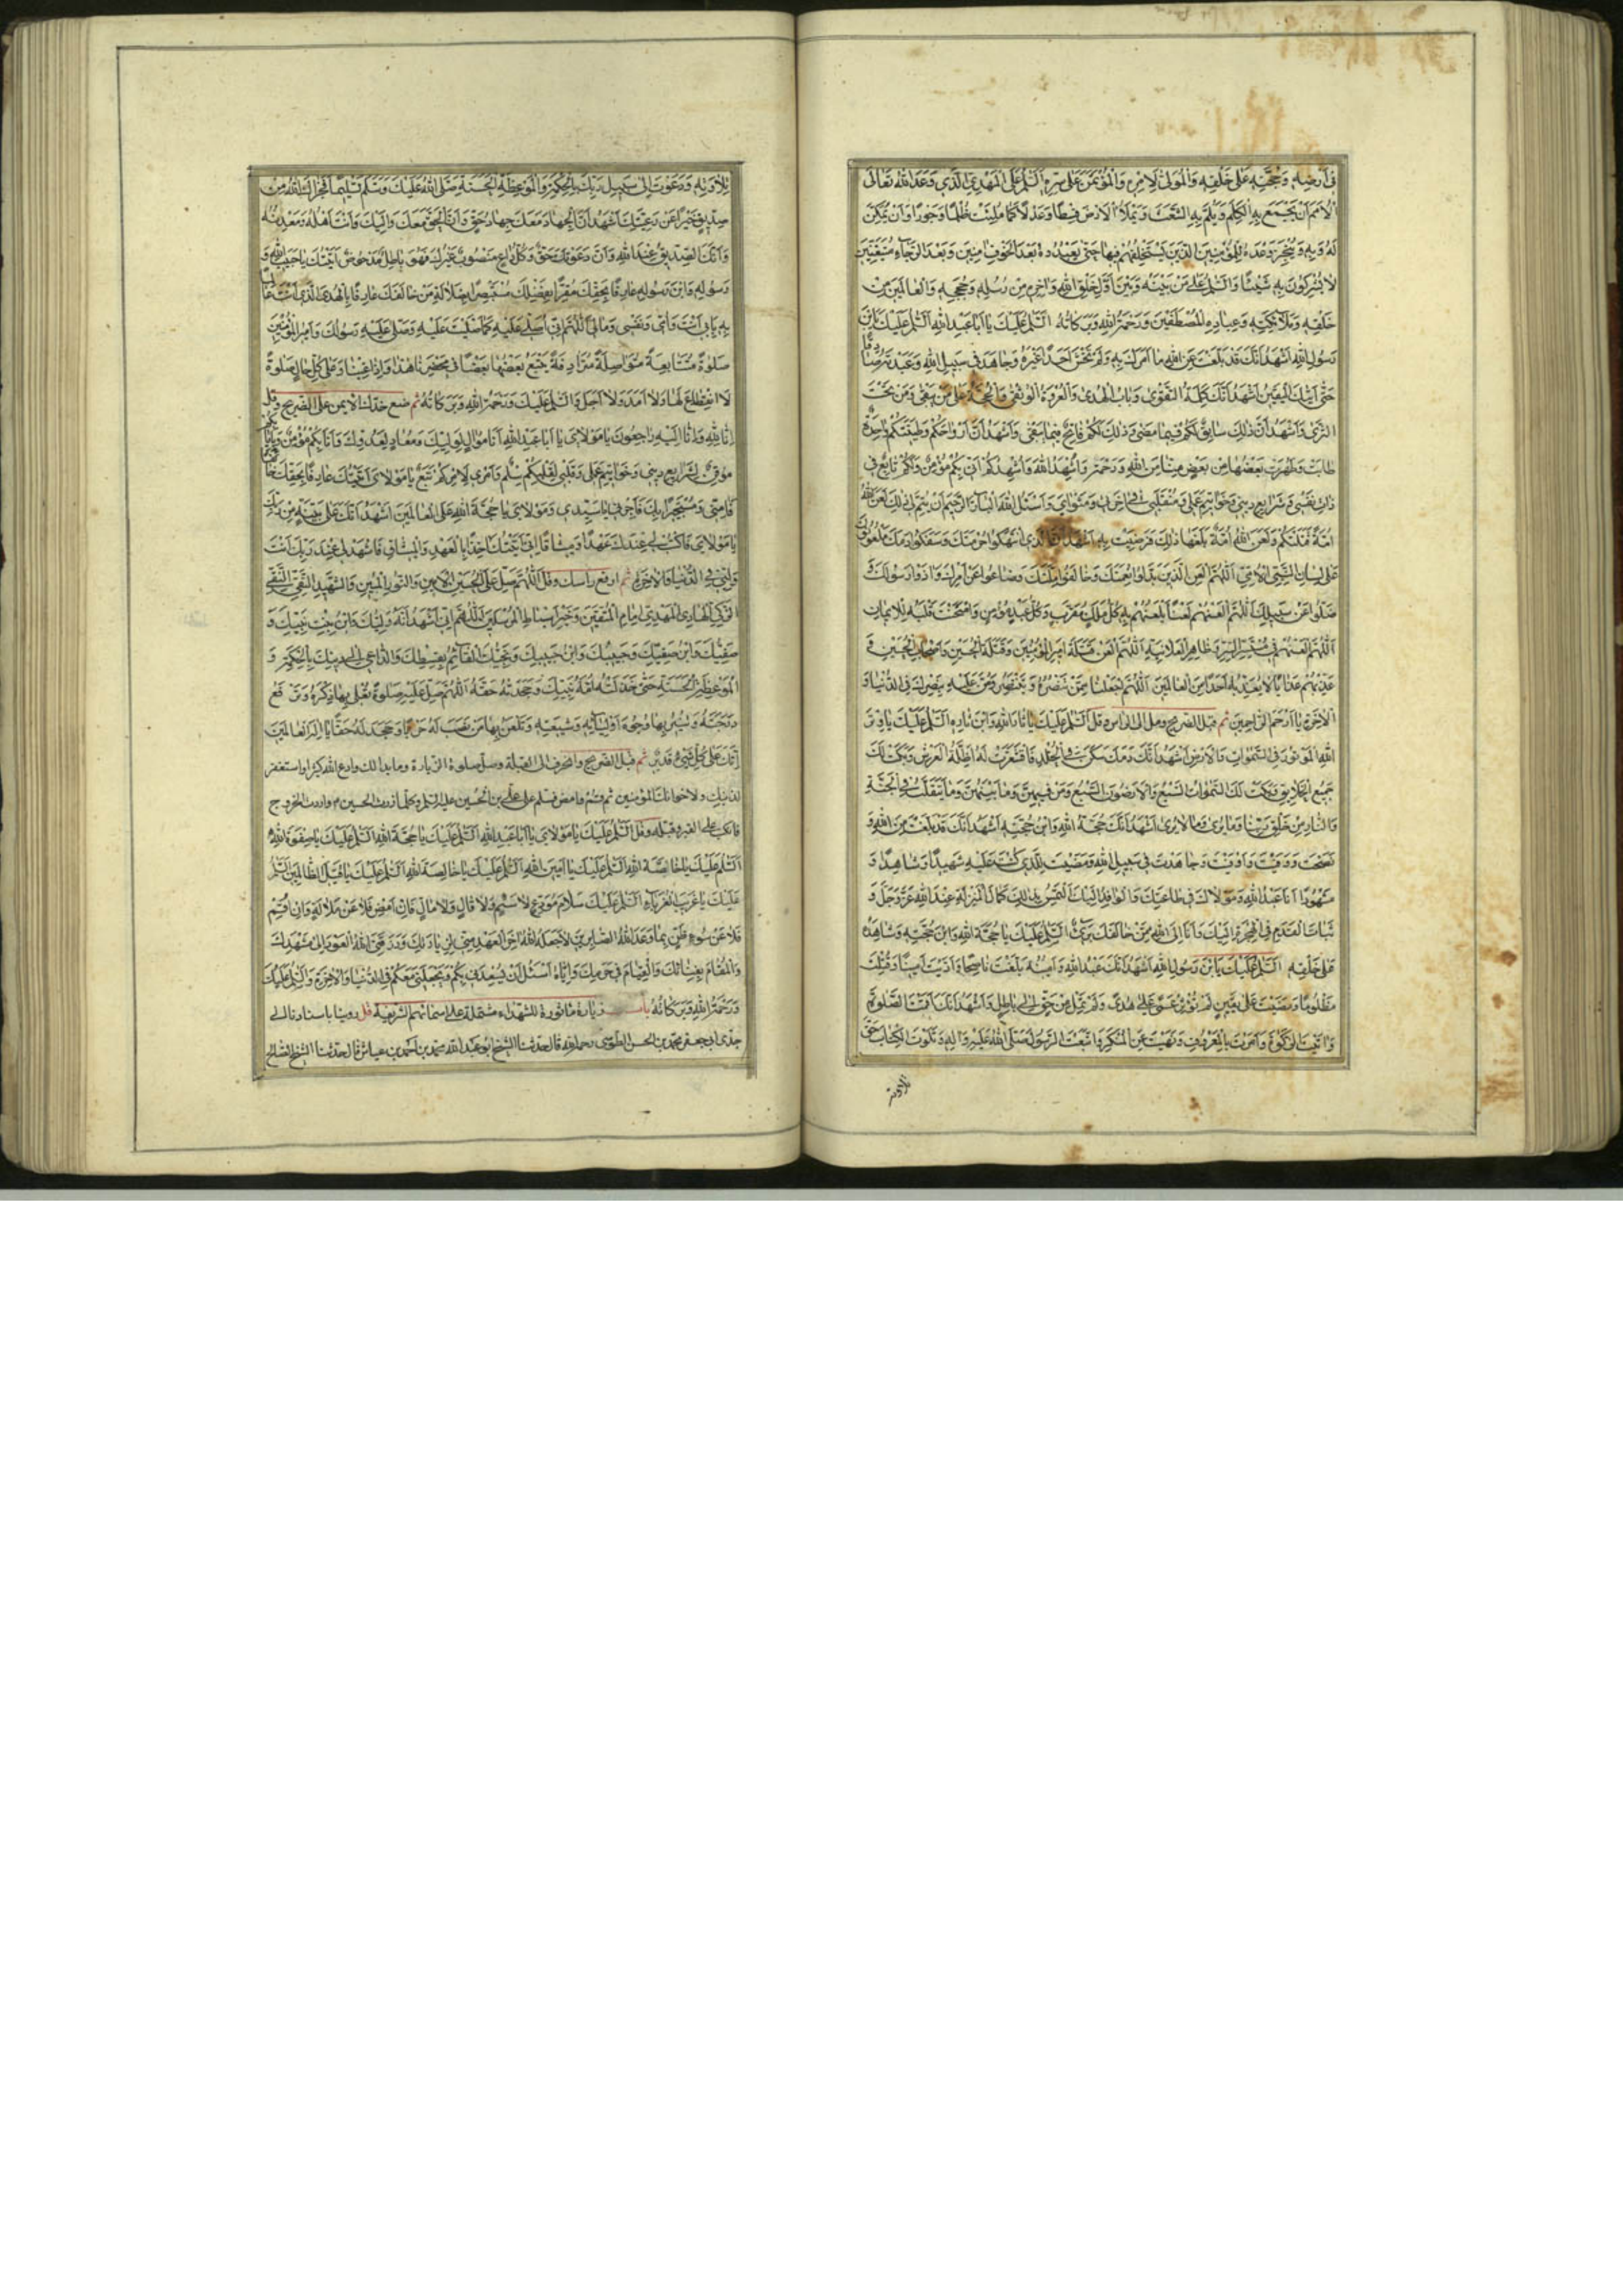 في أرضه وحجته على خلقه والمولى لأمره والمؤتمن على سره السلم على المهدي الذي وعد الله تعالى
الأمم أن يجمع به الكلم ويلم به الشعث ويملأ الأرض قسطا وعدلا كما ملئت ظلما وجورا وأن يمكن
له وبه وينجز وعده للمؤمنين الذين يستخلفهم فيها حتى يعبدوه بعد الخوف امنين
لا يشركون به شيئا والسلم على من بينه وبين أول خلق الله واخرهم من رسله وحججه والعالمين من
خلقه وملائكته وعباده المصطفين ورحمة الله وبركاته السلم عليك يا أبا عبد الله السلم عليك يابن
رسول الله أشهد أنك قد بلغت عن الله ما أمرك به ولم تخش أحدا غيره وجاهدت في سبيل الله وعبدته صادقا
حتى أتيك اليقين أشهد أنك كلمة التقوى وباب الهدى والعروة الوثقى والحجة على من يبقى ومن تحت
الثرى وأشهد أن ذلك سابق لكم فيما مضى وذلك لكم فاتح فيما بقى وأشهد أن أرواحكم وطينتكم واحدة
طابت وطهرت بعضها من بعض منا من الله ورحمة وأشهد الله وأشهدكم أني بكم مؤمن ولكم تابع في
ذات نفسي وشرايع ديني وخواتيم عملي ومنقلبي ومثواي وأسئل الله البار الرحيم أن يتم لي ذلك لعن الله
أمة قتلتكم ولعن الله أمة بلغها ذلك فرضيت به أشهد أن الذين انتهكوا حرمتك وسفكوا دمك ملعونون
على لسان النبي الأمي اللهم العن الذين بدلوا نعمتك وخالفوا ملتك وصدوا عن أمرك واذوا رسولك و
ضلوا عن سبيلك اللهم العنهم لعنا يلعنهم به كل ملك مقرب وكل عبد مؤمن وامتحنت قلبه للايمان
اللهم العنهم في مستسر السر وظاهر العلانية اللهم العن قتلة أمير المؤمنين وقتلة الحسين وأصحاب الحسين و
عذبهم عذابا لا تعذب به أحدا من العالمين اللهم اجعلنا ممن تنصره وتنتصر به ومن عليه بنصرك في الدنيا و
الآخرة يا أرحم الراحمين ثم قبل الضريح ومل الى الراس وقل السلم عليك يا ثار الله وابن ثاره السلم عليك يا وتر
الله الموتور في السموات والأرض أشهد أن دمك سكن في الخلد فاقشعرت له أظلة العرش وبكى لك
جميع الخلايق وبكت لك السموات السبع والأرضون السبع ومن فيهن وما بينهن وما يتقلب في الجنة
والنار من خلق ربنا وما يرى وما لا يرى أشهد أنك حجة الله وابن حجته أشهد أنك قد بلغت عن الله و
نصحت ووفيت وأوفيت وجاهدت في سبيل الله ومضيت للذي كنت عليه شهيدا وشاهدا و
مشهودا أنا عبد الله ومولاك وفي طاعتك والوافد إليك ألتمس بذلك كمال المنزلة عند الله عز وجل و
ثبات القدم في الهجرة إليك وأنا إلى الله ممن خالفك بريء السلم عليك يا حجة الله وابن حجته وشاهده
على خلقه السلم عليك يابن رسول الله أشهد أنك عبد الله وأمينه بلغت ناصحا وأديت أمينا وقتلت
مظلوما ومضيت على يقين لم تؤثر عمى على هدى ولم تمل من حق إلى باطل وأشهد أنك أقمت الصلوة
واتيت الزكوة وأمرت بالمعروف ونهيت عن المنكر واتبعت الرسول صلى الله عليه واله وتلوت الكتاب حق
تلاوته
تلاوته ودعوت إلى سبيل ربك بالحكمة والموعظة الحسنة صلى الله عليك وسلم تسليما فجزاك الله من
صديق خيرا عن رعيتك أشهد أن الجهاد معك جهاد حق وأن الحق معك وإليك وأنت أهله ومعدنه
وأنك الصديق عند الله وأن دعوتك حق وكل داع منصوب غيرك فهو باطل مدحوض أتيتك يا حبيب الله و
رسوله وابن رسوله عارفا بحقك مقرا بفضلك مستبصرا بضلالة من خالفك عارفا بالهدى الذي أنت عليه
بأبي أنت وأمي ونفسي ومالي اللهم إني أصلي عليه كما صليت عليه وصلى عليه رسولك وأمير المؤمنين
صلوة متتابعة متواصلة مترادفة تتبع بعضها بعضا في محضرنا هذا وإذا غبنا وعلى كل حال صلوة
لا انقطاع لها ولا أمد ولا أجل والسلم عليك ورحمة الله وبركاته ثم ضع خدك الايمن على الضريح وقل
إنا لله وإنا إليه راجعون يا مولاي يا أبا عبد الله أنا موال لوليك ومعاد لعدوك وأنا بكم مؤمن وبإيابكم
موقن بشرايع ديني وخواتيم عملي وقلبي لقلبكم سلم وأمري لأمركم متبع يا مولاي أتيتك عارفا بحقك
ومستجيرا بك فأجرني يا سيدي ومولاي يا حجة الله على العالمين أشهد أنك على بينة من ربك
يا مولاي فاكتب لي عندك عهدا وميثاقا إني أتيتك اخذا بالعهد والميثاق فاشهد لي عند ربك أنت
وليي في الدنيا والآخرة ثم ارفع راسك وقل اللهم صل على الحسين الأمين والنور المبين والشهيد التقي النقي
الزكي الهادي المهدي إمام المتقين وخير أسباط المرسلين اللهم إني أشهد أنه وليك وابن بنت نبيك و
صفيك وابن صفيك وحبيبك وابن حبيبك ونجيك القائم بقسطك والداعي إلى دينك بالحكمة و
الموعظة الحسنة حتى خذلته أمة نبيك وجحدته حقه اللهم صل عليه صلوة تعلي بها ذكره وترفع
درجته وتنير بها وجوه أوليائه وشيعته وتلعن بها من نصب له حربا وجحد له حقا يا إله العالمين
إنك على كل شيء قدير ثم قبل الضريح وانحرف الى القبلة وصل صلوة الزيارة وما بدا لك وادع الله كثيرا واستغفر
لذنبك ولاخوانك المؤمنين ثم قم وامض فسلم على علي بن الحسين عليه السلم وكلما زرت الحسين م واردت الخروج
فانكب على القبر وقبله وقل السلم عليك يا مولاي يا أبا عبد الله السلم عليك يا حجة الله السلم عليك يا صفوة الله
السلم عليك يا خاصة الله السلم عليك يا أمين الله السلم عليك يا خالصة الله السلم عليك يا قتيل الظالمين السلم
عليك يا غريب الغرباء السلم عليك سلام مودع لا سئم ولا قال ولا مال فإن أمض فلا عن ملالة وإن أقم
فلا عن سوء ظن بما وعد الله الصابرين لا جعله الله اخر العهد مني لزيارتك ورزقني الله العود إلى مشهدك
والمقام بفنائك والقيام في حرمك وإياه أسئل أن يسعدني بكم ويجعلني معكم في الدنيا والآخرة والسلم عليك
ورحمة الله وبركاته زيارة ماثورة للشهداء مشتملة على اسمائهم الشريفة قل روينا باسنادنا الى
جدي ابي جعفر محمد بن الحسن الطوسي رحمه الله قال حدثنا الشيخ ابو عبد الله محمد بن احمد بن عياش قال حدثنا الشيخ الصالح